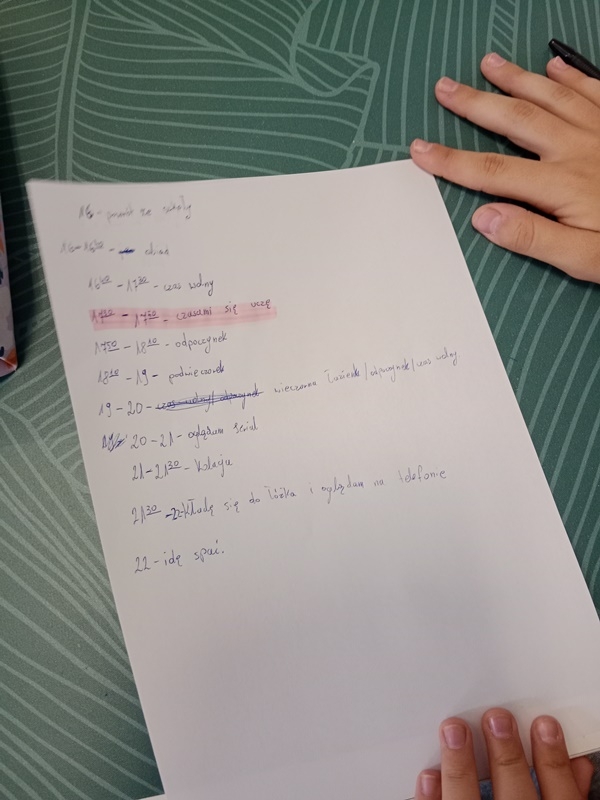 16 - powrót ze szkoły
16-16⁴⁰ - obiad
16⁴⁰ - 17³⁰ - czas wolny
17³⁰ - 17⁵⁰ - czasami się uczę
17⁵⁰ - 18¹⁰ - odpoczynek
18¹⁰ - 19 - podwieczorek
19 - 20 - wieczorna łazienka/odpoczynek/czas wolny
20 - 21 - oglądam serial
21 - 21³⁰ - kolacja
21³⁰ - kładę się do łóżka i oglądam na telefonie
22 - idę spać.